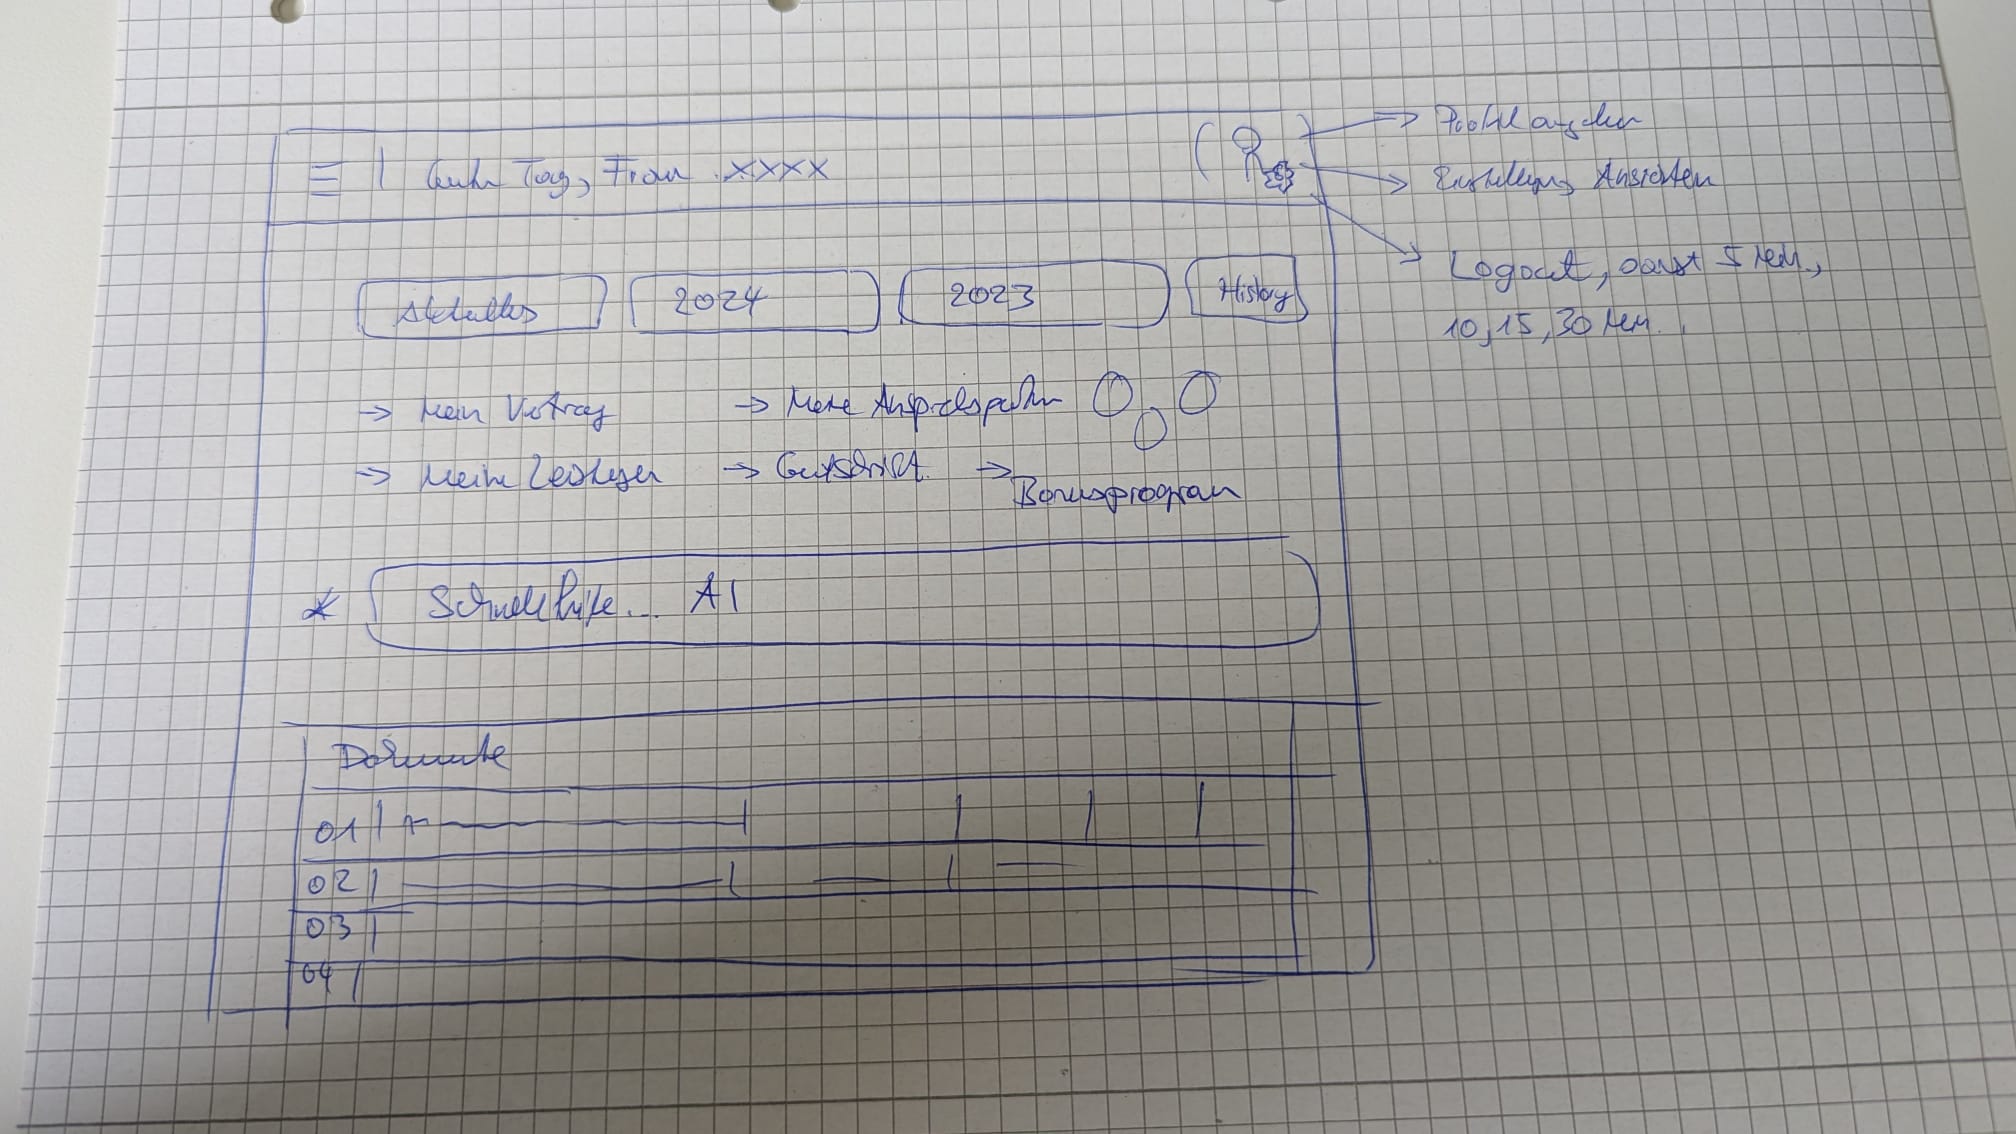 Guten Tag, Frau XXXX
Profil angeben
Einstellung, Ansichten
Logout, sonst 5 Min.,
10, 15, 30 Min.
Aktuelles
2024
2023
History
→ Mein Vertrag
→ Meine Ansprechpartner
→ Meine Leistungen
→ Gutschrift
→ Bonusprogramm
* Schnelle Hilfe... AI
Dokumente
01
02
03
04